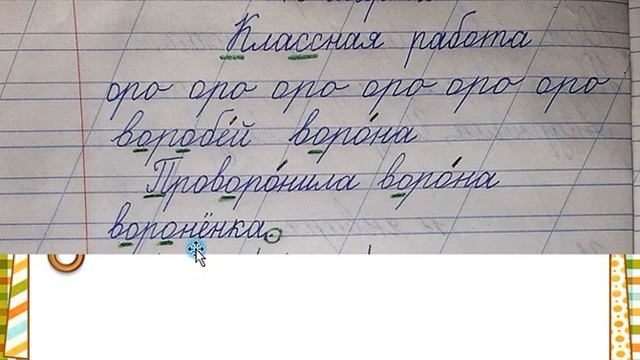 Классная работа
оро оро оро оро оро оро
воробе́й воро́на
Проворо́нила воро́на
воронёнка.